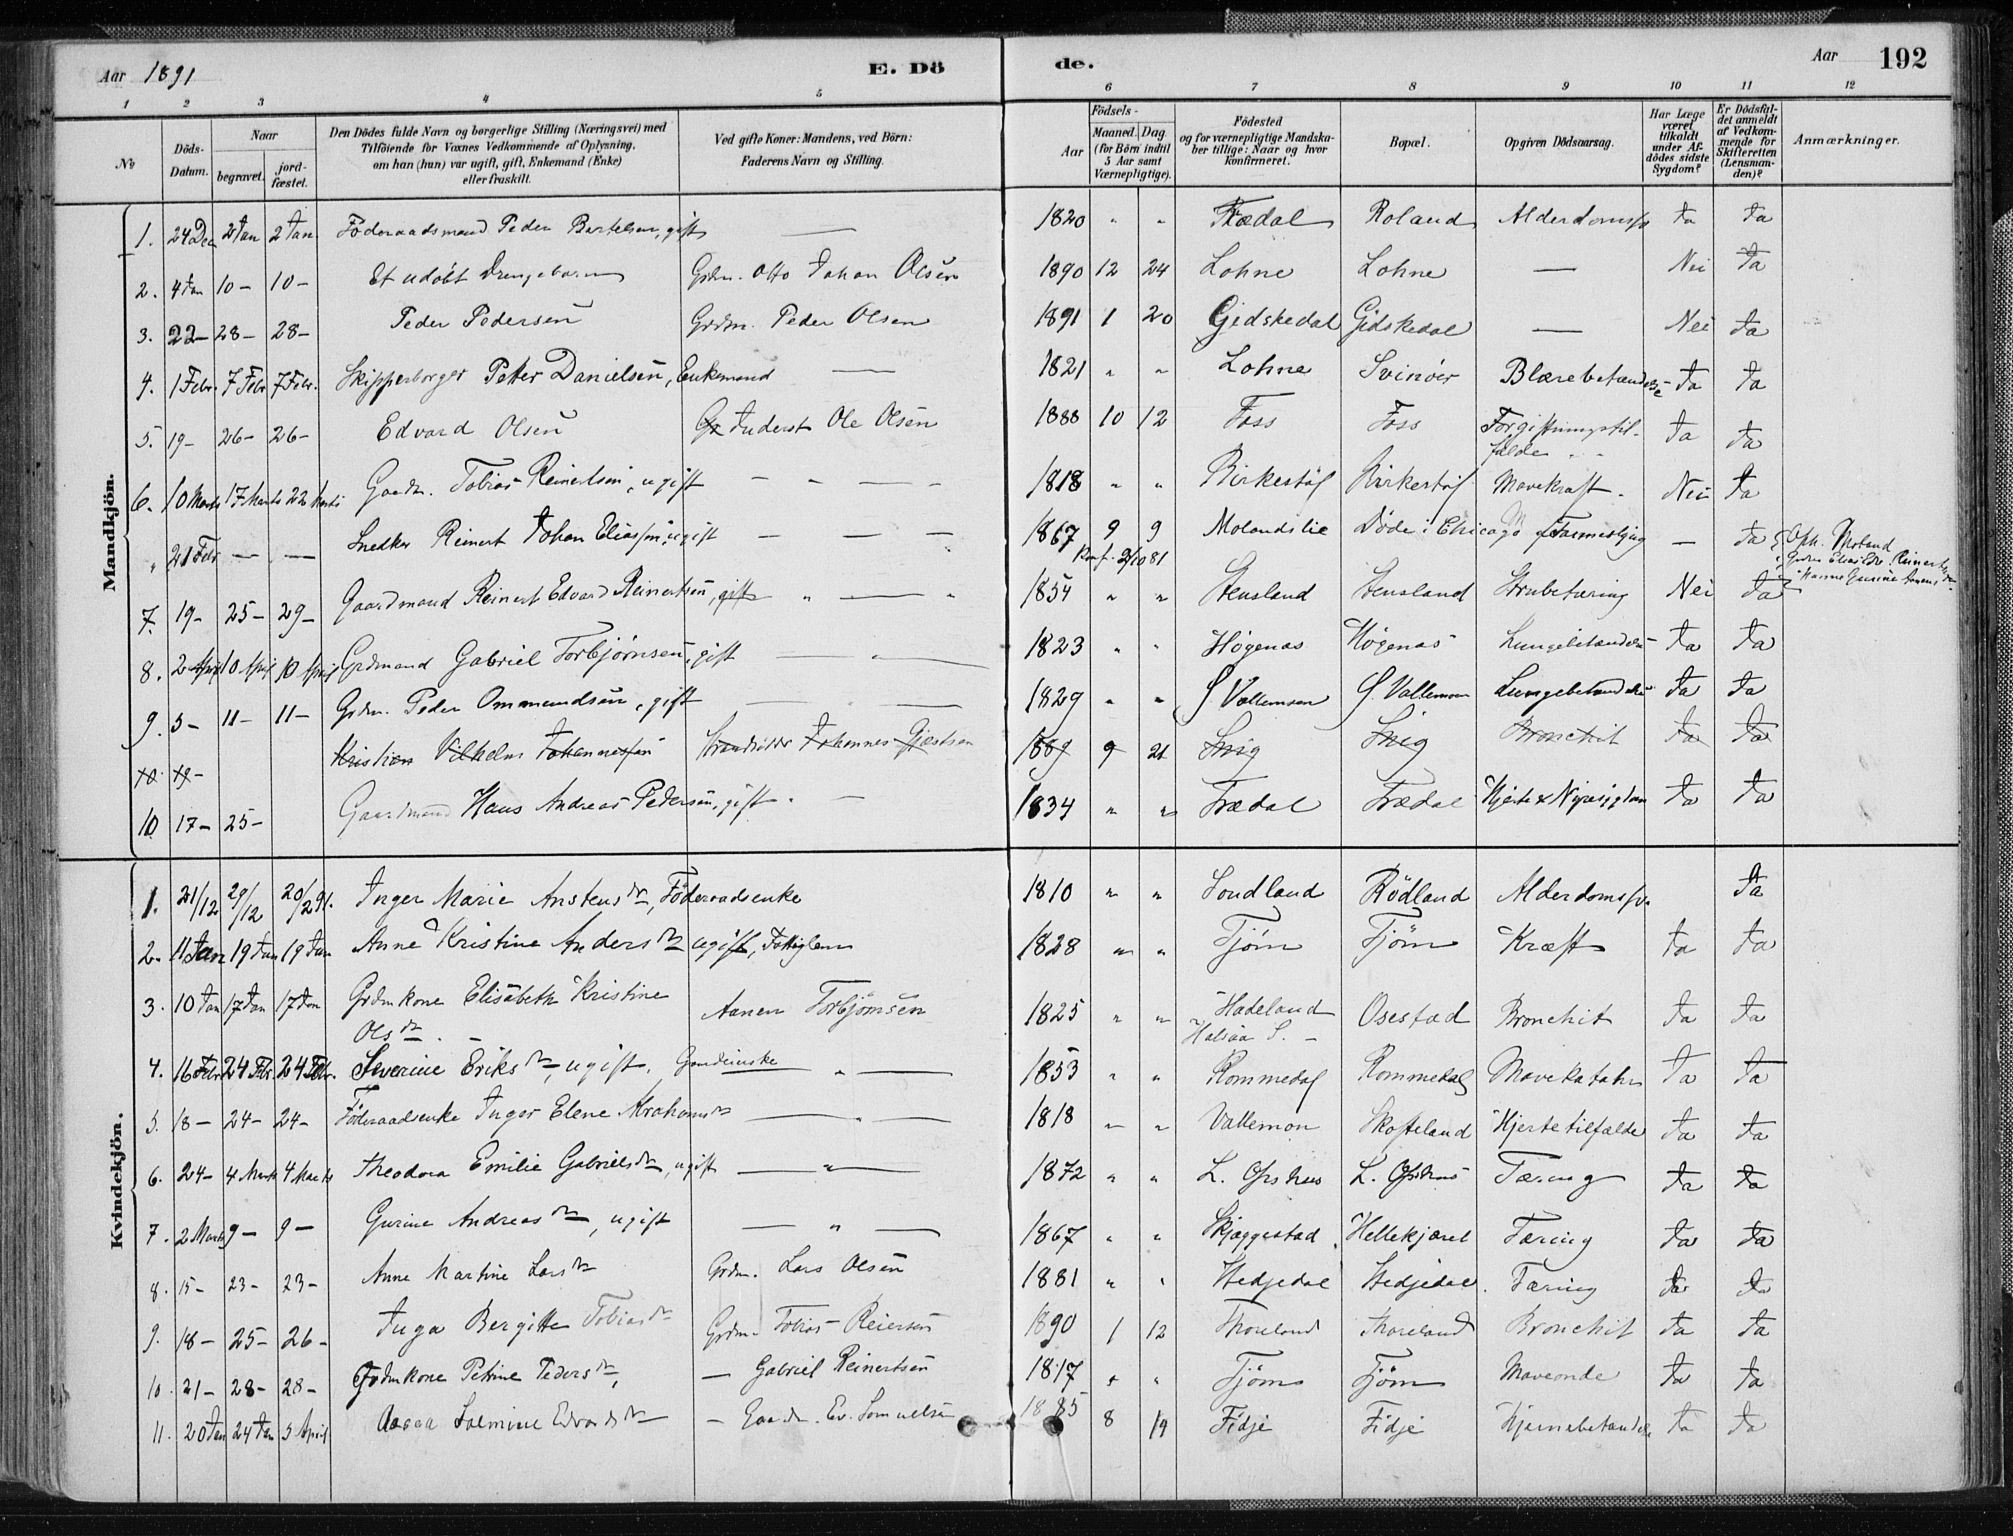 Aar 1891 E. Dö de. Aar 192
1 2 3 4 5 6 7 8 9 10 11 12
No
Döds-Datum.
Naar
begravet.
jord-fæstet.
Den Dödes fulde Navn og borgerlige Stilling (Næringsvei) med
Tilföiende for Voxnes Vedkommende af Oplysning,
om han (hun) var ugift, gift, Enkemand (Enke)
eller fraskilt.
Ved gifte Koner: Mandens, ved Börn:
Faderens Navn og Stilling.
Födsels-
Aar
Maaned. Dag.
(for Börn indtil
5 Aar samt
Værnepligtige).
Födested
og for værnepligtige Mandska-
ber tillige: Naar og hvor
konfirmeret.
Bopæl.
Opgiven Dödsaarsag.
Har Læge
været
tilkaldt
under Af-
dödes sidste
Sygdom?
Er Dödsfal-
det anmeldt
af Vedkom-
mende for
Skifteretten
(Lensman-
den)?
Anmærkninger.
Mandkjön.
1. 24 Dec 2 Jan 2 Jan Föderaadsmand Peder Bertelsen, gift — 1820 " " Trædal Roland Alderdomssv Ja Ja
2. 4 Jan 10 – 10 – Et udöbt Drengebarn Grdm. Otto Johan Olsen 1890 12 24 Lohne Lohne — Nei Ja
3. 22 – 28 – 28 – Peder Pedersen Grdm. Peder Olsen 1891 1 20 Gjedskedal Gidskedal — Nei Ja
4. 1 Febr. 7 Febr 7 Febr. Skipperborger Petter Danielsen, Enkemand — 1821 " " Lohne Svinöer Blærebetændelse Ja Ja
5. 19 – 26 – 26 – Edvard Olsen Inderst Ole Olsen 1888 10 12 Foss Foss Forgiftningstil-
fælde Ja Ja
6. 10 Marts 17 Marts 22 Marts Gaardm. Tobias Reinertsen, ugift – " — 1818 " " Birkestöl Birkestöl Mavekræft. Nei Ja
" 21 Febr — — Snedker Reinert Johan Eliassen, ugift — — — 1867 9 9 Molandslie Döde i Chicago — Ja
Konf. 2/10 81
7. 19 – 25 – 29 – Gaardmand Reinert Edvard Reinertsen, gift " — " 1854 " " Stensland Stensland Strubetæring Nei Ja
8. 2 April 10 April 10 April Grdmand Gabriel Torbjörnsen, gift — " — 1823 " " Högenæs Högenæs Lungebetændelse Ja Ja
9. 5 – 11 – 11 – Grdm. Peder Ommundsen, gift — " — 1829 " " S Vallemoen S. Vallemoen Lungebetændelse Ja Ja
10. 19 – Kristian Vilhelm Johannessen Strandsidder Johannes Gjertsen 1889 9 21 Snig Snig Bronchit Ja Ja
10 17 – 25 – Gaardmand Hans Andreas Pedersen, gift. — 1834 " " Trædal Trædal Hjerte & Nyresygdom Ja Ja
Kvindekjön.
1. 21/12 29/12 20/2 91. Inger Marie Anstensdr, Föderaadsenke 1810 " " Sondland Rödland Alderdomssv. Ja
2. 11 Jan 19 Jan 19 Jan Anne Kristine Andersdr ugift, Fattiglem 1828 " " Tjöm Tjöm Kræft Ja Ja
3. 10 Jan 17 Jan 17 Jan Grdmkone Elisabeth Kristine
Olsdr. – Aanen Torbjörnsen 1825 " " Hadeland
Halsaa S. – Osestad Bronchit Ja Ja
4. 16 Febr 24 Febr 24 Febr. Severine Eriksdr, ugift, " — 1853 " " Kommedal Kommedal Mavekatahr Ja Ja
5. 18 – 24 – 24 – Föderaadsenke Inger Elene Abrahamsdr — " — 1818 " " Vallemon Skofteland Hjertetilfælde Ja Ja
6. 24 – 4 Marts 4 Marts Theodora Emilie Gabrielsdr, ugift — " — 1872 " " L. Opshus L. Opshus Tæring Ja Ja
7. 2 Marts 9 – 9 – Gurine Andreasdr, ugift — " — 1867 " " Skjeggestad Hellekjæret Tæring Ja Ja
8. 15 – 23 – 23 – Anne Martine Larsdr Grdm. Lars Olsen 1881 " " Stedjedal Stedjedal. Tæring Ja Ja
9. 18 – 25 – 26 – Inga Bergitte Tobiasdr Grdm. Tobias Reiersen 1890 1 12 Thoreland Thoreland Bronchit Ja Ja
10. 21 – 28 – 28 – Grdmkone Petrine Pedersdr, — Gabriel Reinertsen 1817 " " Tjöm Tjöm Maveonde Ja Ja
11. 20 Jan 24 Jan 5 April Aasea Salmine Edvardsdr – Gaardm. Ev. Samuelsen 1885 8 19 Fidje Fidje Hjernebetændelse Ja Ja